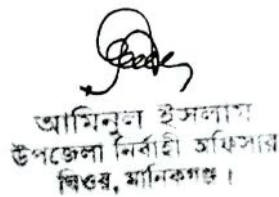 আমিনুল ইসলাম
উপজেলা নির্বাহী অফিসার
ঘিওর, মানিকগঞ্জ।